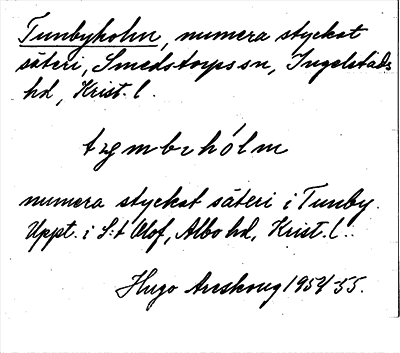 Tunbyholm, numera styckat
säteri, Smedstorps sn, Ingelstads
hd, Krist. l.
numera styckat säteri i Tunby.
Uppt. i S:t Olof, Albo hd, Krist. l.
Hugo Areskoug 1954-55.